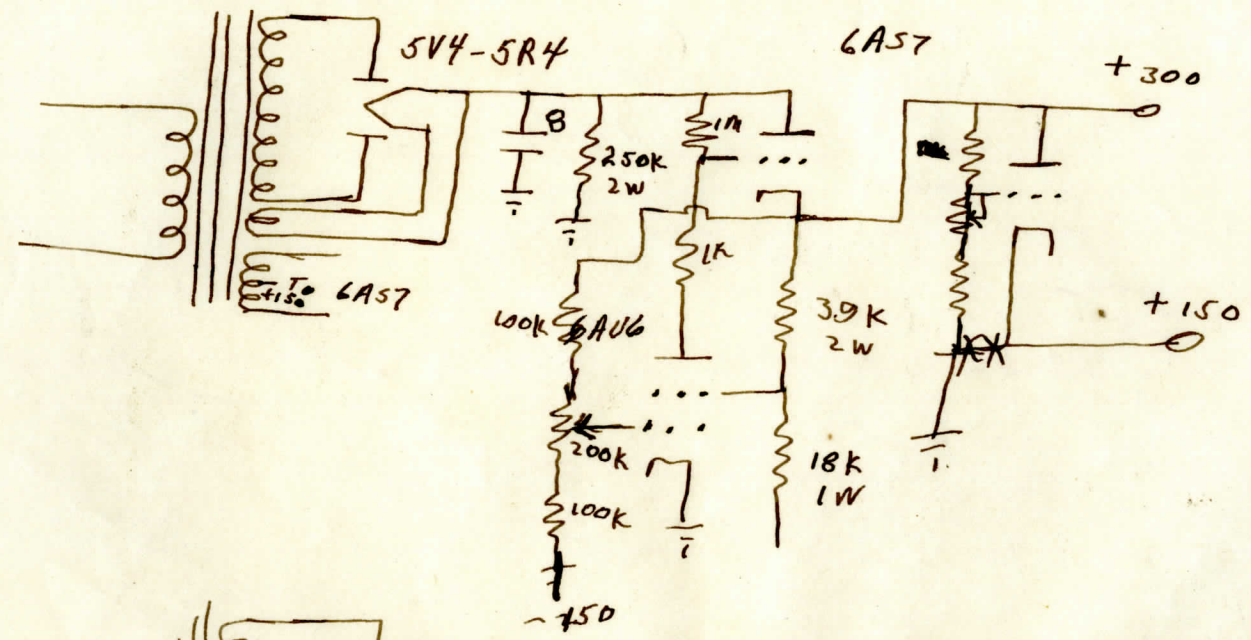 5V4-5R4
6AS7
+300
8
250K
2W
1M
1K
To
+150
6AS7
100K
6AU6
39K
2W
+150
200K
18K
1W
100K
-150